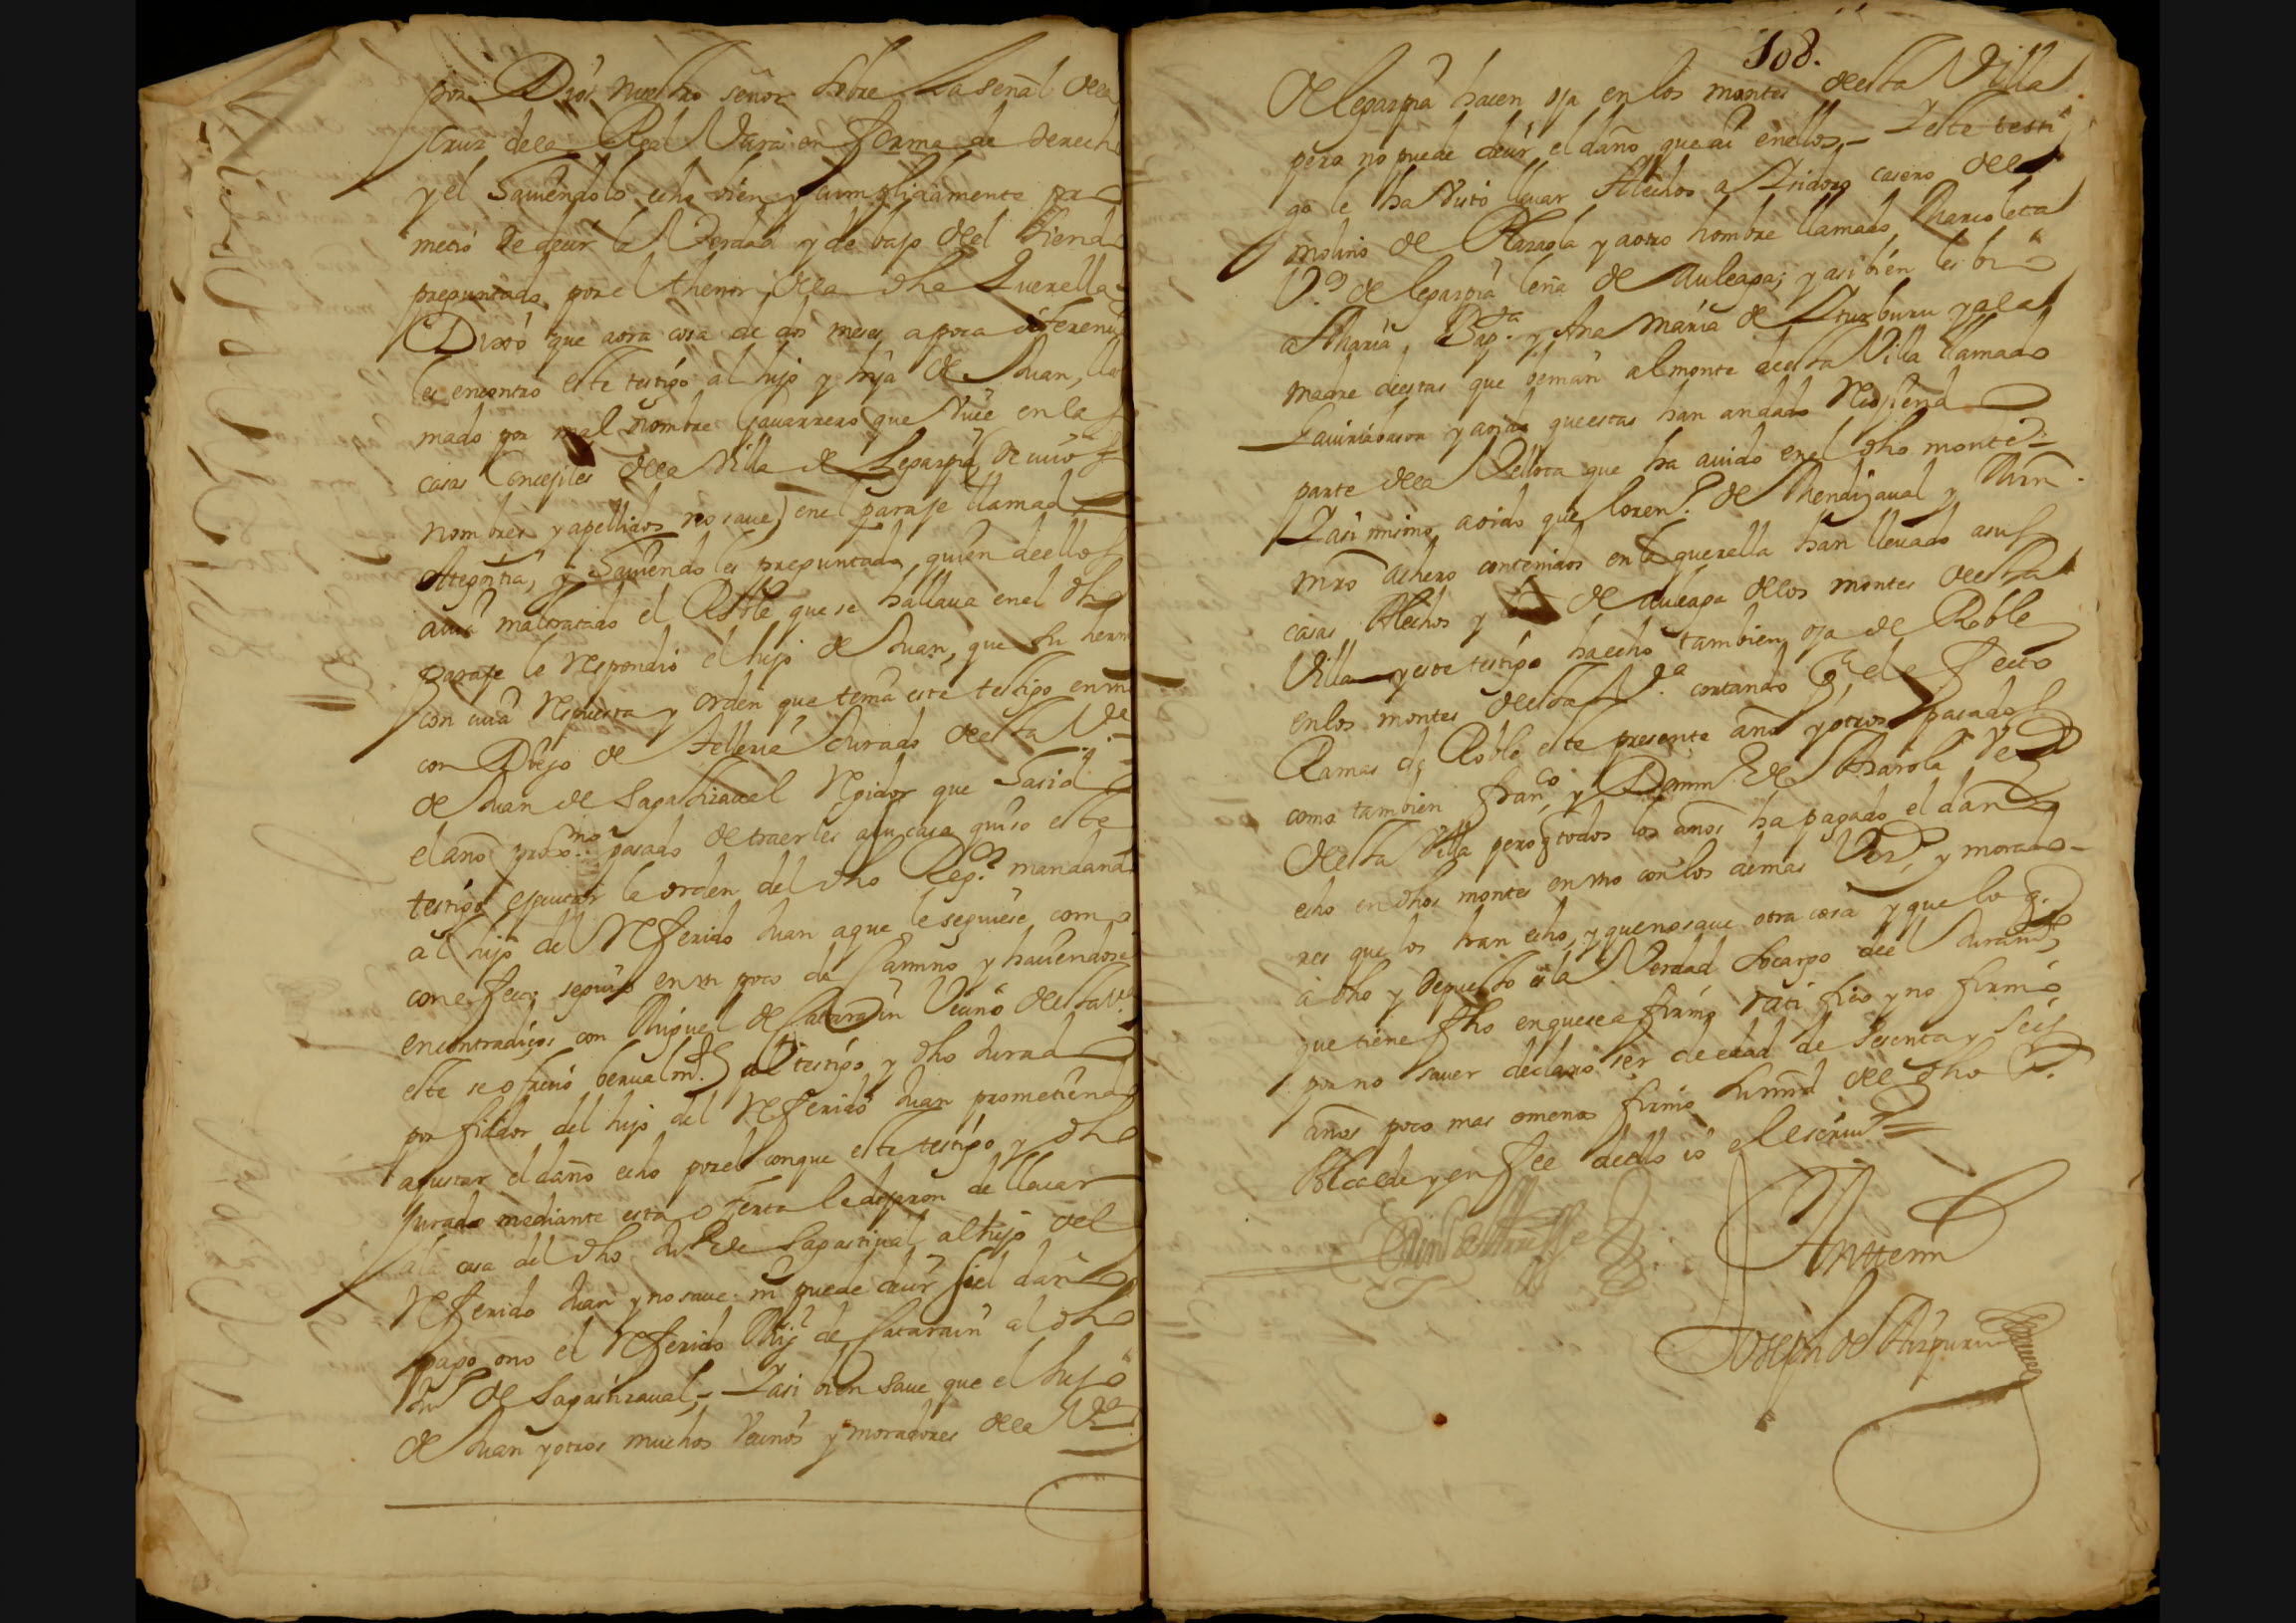 por Dios nuestro señor sobre la señal dela
cruz dela Real Vara en forma de derecho
y el haviendolo echo bien y cumplidamente pro
metio de decir la Verdad y debajo del siendo
preguntado por el thenor dela dha Querella
Dixo que aora cosa de dos meses a poca diferencia
les encontro este testigo al hijo y hija de Juan, lla
mado por mal nombre Gavarrero que Vive en las
casas Concejiles dela Villa de Legazpia (de cuios
nombres y apellidos no save) en el paraje llamado
y haviendoles preguntado, quien deellos
avia maltratado el Roble que se hallava en el dho
paraje le respondio el hijo de Juan, que su herm
con cuia respuesta y orden que tenia este testigo en un
con Diego de Telleria Jurado deesta Vª
de Juan de Sagastizaval Regidor que ha sido
el año proxmo pasado de traerles a su casa quiso este
testigo ejecutar la orden del dho Regor mandando
al hijo del Referido Juan a que le seguiese como
con efecto seguio en un poco de Camino y haviendose
encontradiços con Miguel de Catarain Vecino deesta Vª
este se ofrecio bervalmte al testigo y dho Jurado
por fiador del hijo del Referido Juan prometiendo
ajustar el daño echo por el con que este testigo y dho
Jurado mediante esta oferta le dejaron de llevar
a la casa del dho Jun de Sagastizaval al hijo del
Referido Juan y no save ni puede decir si el daño
pago o no el Referido Migl de Catarain al dho
Jun de Sagastizaval,- Y asi bien save que el hijo
de Juan y otros muchos Vecinos y moradores dela Vª
108.
de legazpia hacen oja en los montes deesta Villa
pero no puede decir el daño que ai en ellos,- Y este testi
go le ha Visto llevar Elechos a Isidoro casero del
molino de Olazaola y a otro hombre llamado Marcoleta
Vº de legazpia leña de Auleaga; y asi bien les bio
a Maria Bapta y Ana Maria de Iturburu y a la
madre deestas que benian al monte deesta Villa llamado
y a oido que estas han andado Recojiendo
parte dela Vellota que ha avido en el dho monte:-
Y asi mismo a oido que Loren.º de Mendizaval y Mrn
contenidos en la querella han llevado a sus
casas Elechos y de Auleaga delos montes deesta
Villa y este testigo ha echo tambien oja de Roble
en los montes deesta Vª cortando pª el efecto
Ramas de Roble este presente año y otros pasados
como tambien Franco y Domin.º de
deesta Villa pero todos los años ha pagado el daño
echo en dhos montes en uno con los demas Vezos y morado-
res que los han echo, y que no save otra cosa y que lo q.
a dho y depuesto es la Verdad so cargo del Juramto
que tiene fho en que se afirmo ratifico y no firmo
por no saver declaro ser de edad de sesenta y seis
años poco mas o menos firmo su mrd del dho Sr
Alcalde y en fee deello io el escrivo =
Anttemi
Joseph de Aizpuru